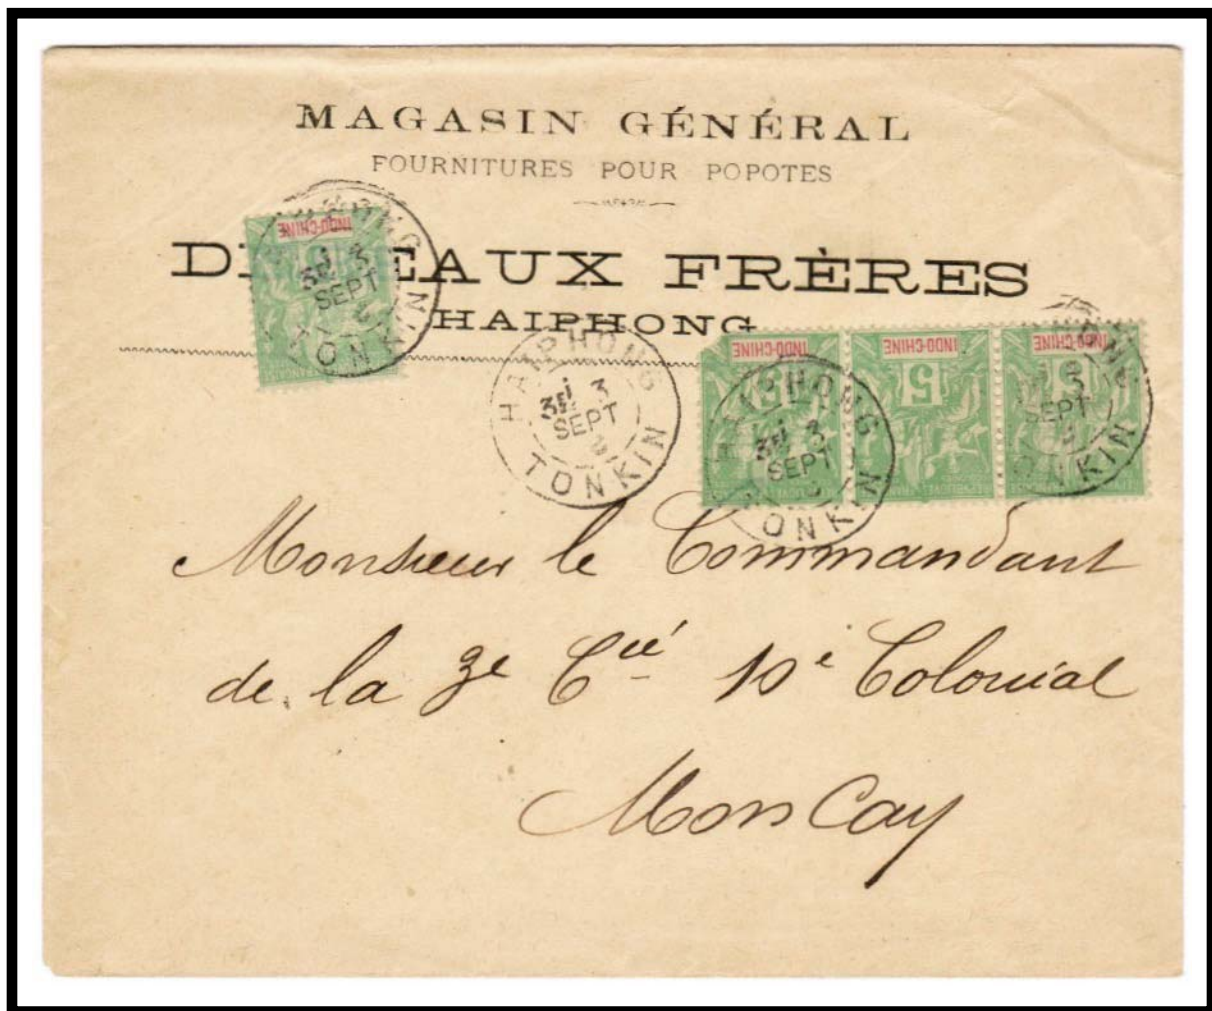 MAGASIN GÉNÉRAL
FOURNITURES POUR POPOTES
FRÈRES
HAIPHONG
INDO-CHINE
5
HAIPHONG
3
SEPT
TONKIN
HAIPHONG
3E 3
SEPT
TONKIN
INDO-CHINE
INDO-CHINE
5
INDO-CHINE
5
HAIPHONG
3E 3
SEPT
TONKIN
3
SEPT
Monsieur le Commandant
de la 3e Cie 10e Colonial
Moncay